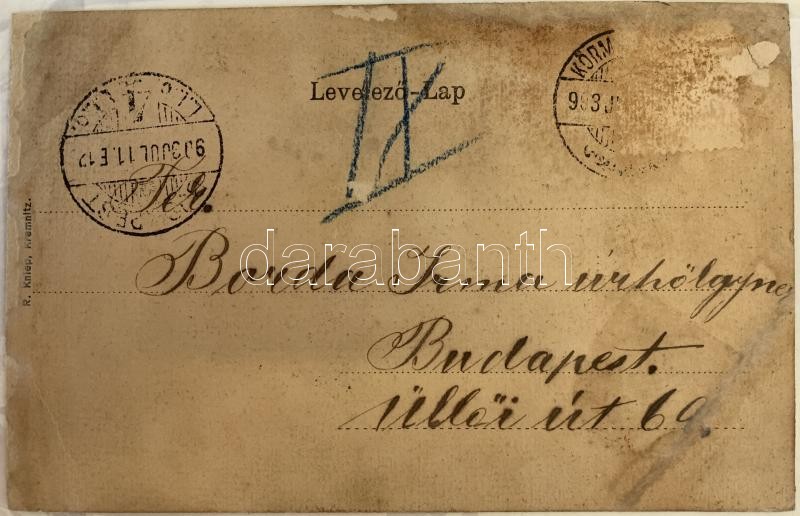 IX
Levelező-Lap
KÖRM
903 J
903 JUL 11. É 12
PEST
Tek.
Borda Irma úrhölgynek
Budapest.
Üllői út 69.
R. Kniep, Kremnitz.
darabanth